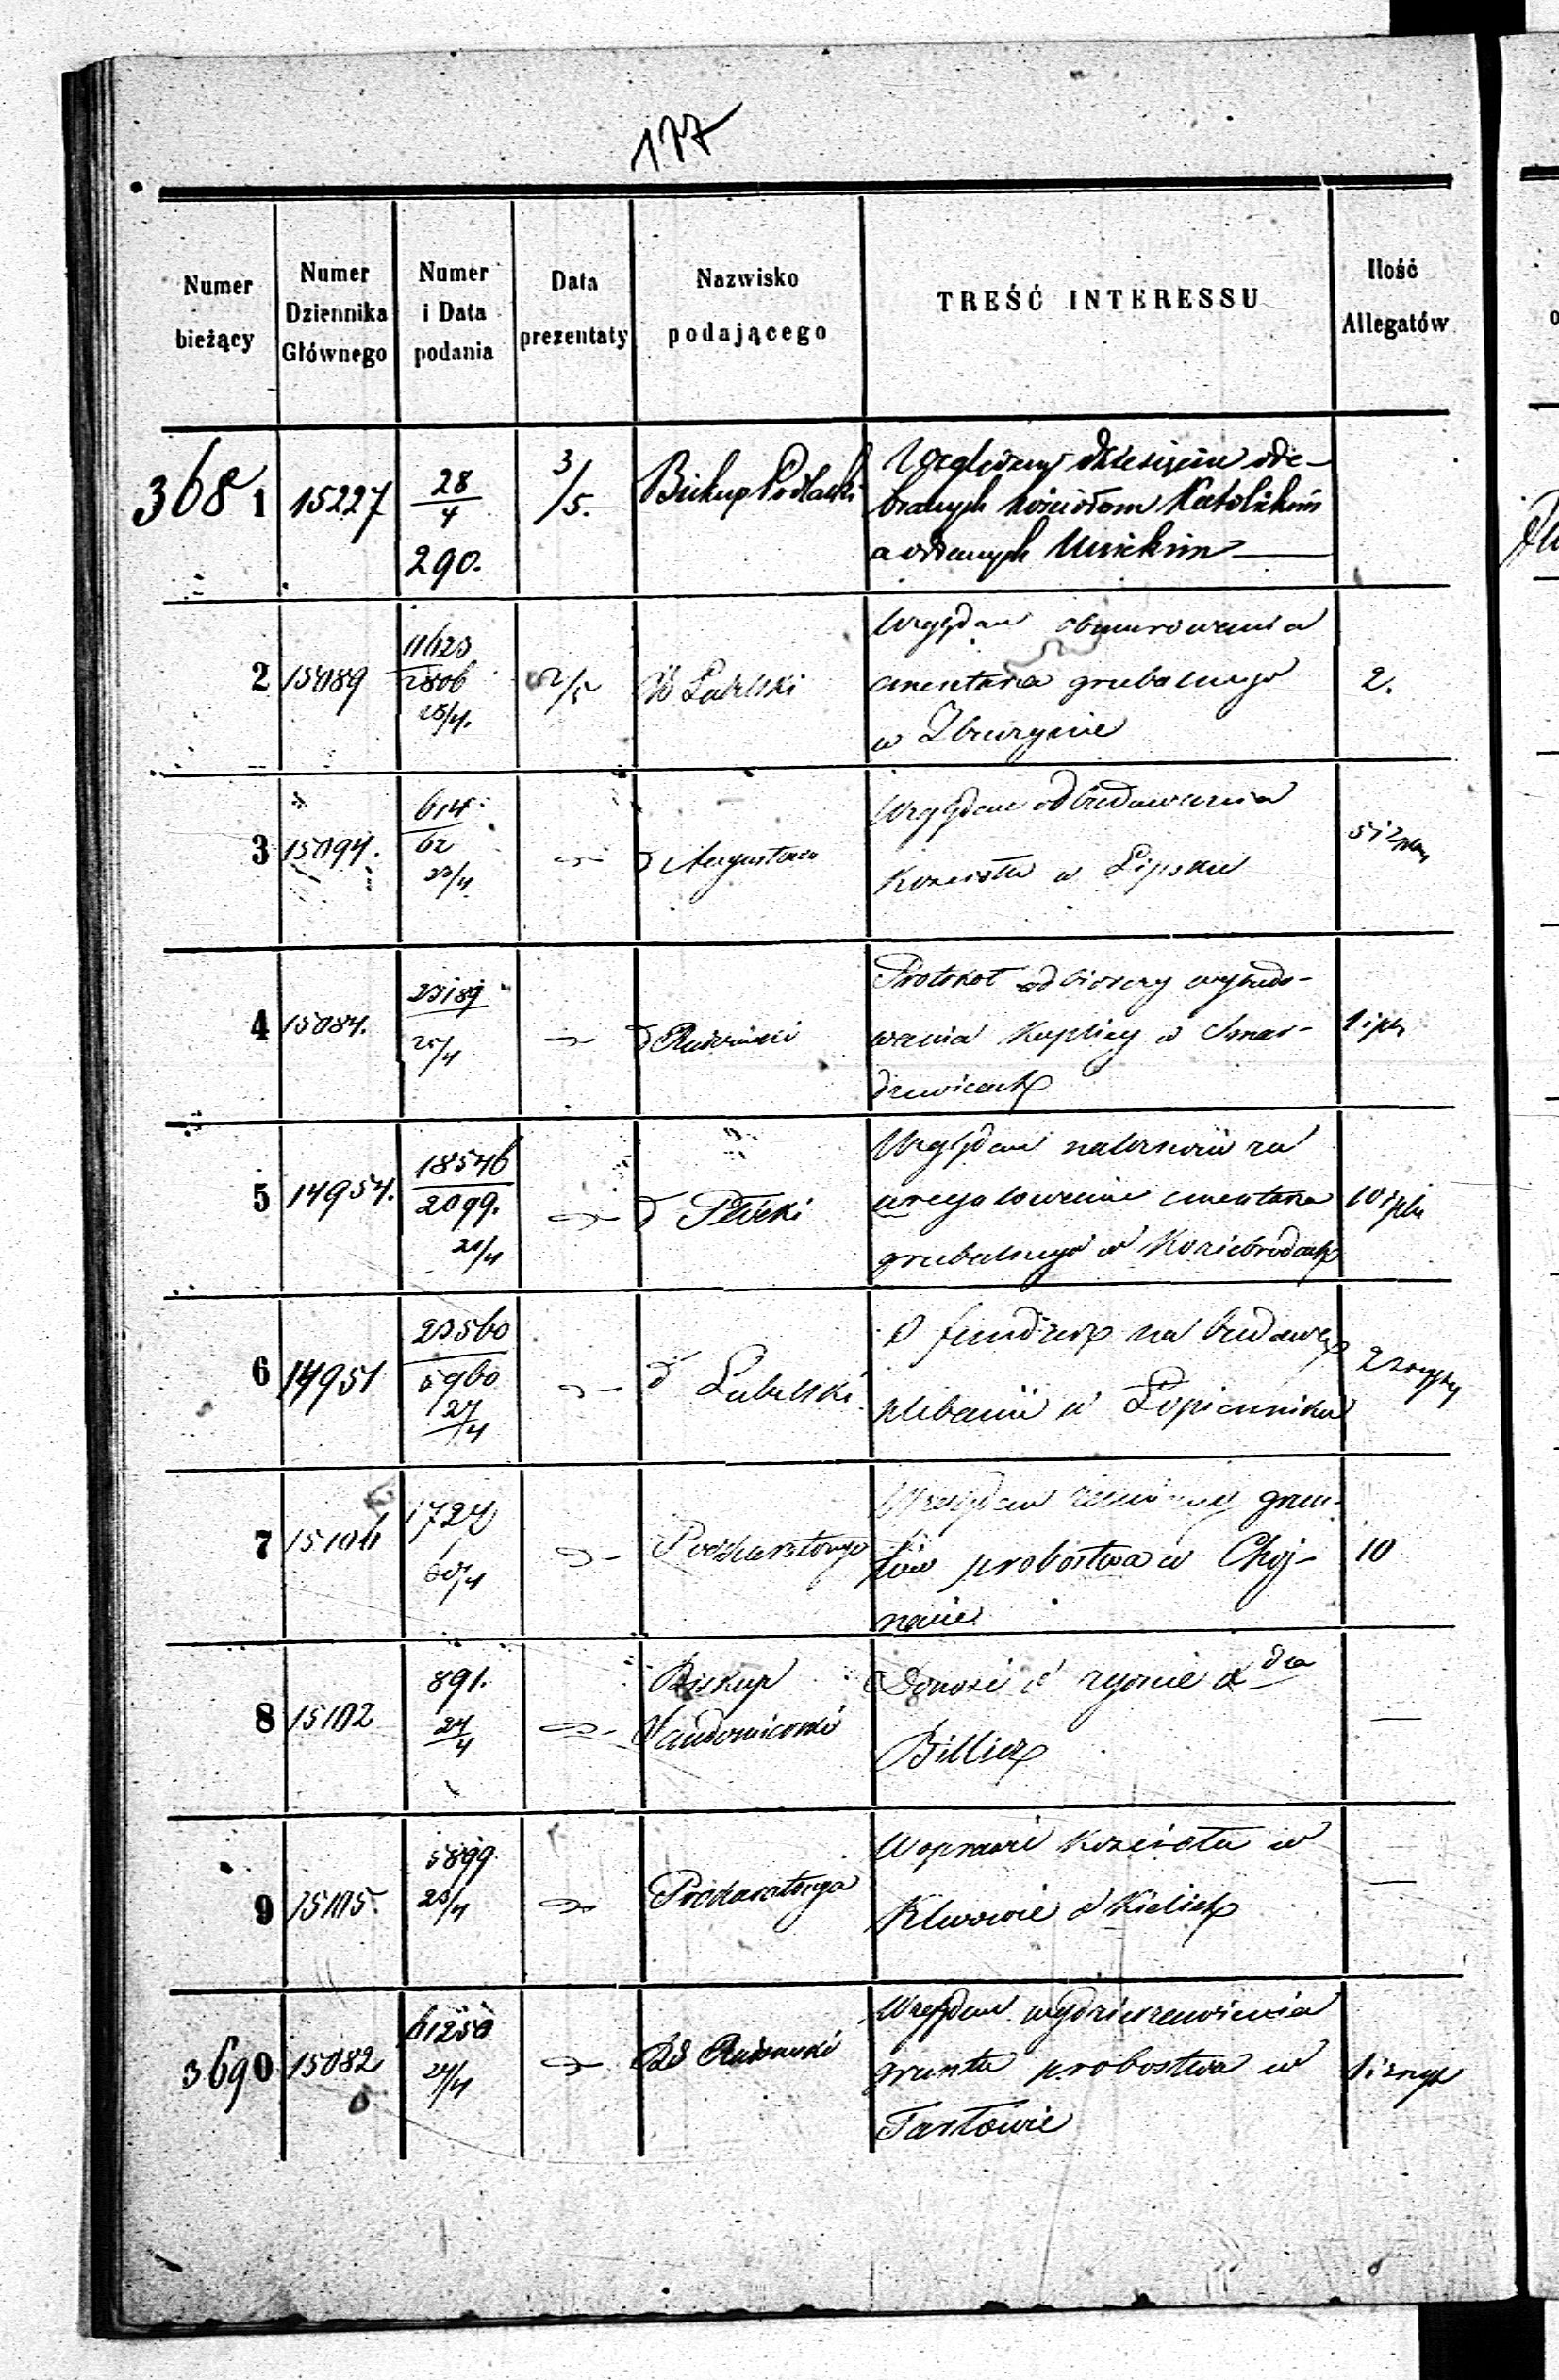 177
Numer bieżący
Numer Dziennika Głównego
Numer i Data podania
Data prezentaty
Nazwisko podającego
TREŚĆ INTERESSU
Ilość Allegatów
3681 15227 28/4 290. 3/5. Biskup Podlaski
Względem dziesięcin ode-
branych kościołom Katolickim
a oddanych Unickim
2 15089 11623 2806 28/4. 2/5 Lubelski 2.
Względem obmurowania
cmentarza grzebalnego
w
3 15094. 614 62 23/4 d Augustow
Względem odbudowania
Kościoła w Lipsku
4 15084. 23189 25/4 d Radomski
Protokoł odbiorczy wybudo-
wania Kaplicy w Smar-
dzewicach
5 14954. 18546 2099. 21/4 d Płocki
Względem należności za
uregulowanie cmentarza
grzebalnego w Koziebrodach
6 14951 23560 5960 27/4 d Lubelski
O fundusz na budowę
plebanii w Łopienniku
7 15106 1724 Prokuratorya 10
Względem grun-
tów probostwa w Choj-
nacie
8 15102 891. 24/4 Biskup Sandomierski
Donosi o zgonie Xdza
9 15105. 5899 23/4 Prokuratorya
W sprawie Kościoła w
Klwowie
3690 15082 61250 24/4 Radomski
Względem wydzierżawienia
gruntu probostwa w
Tarłowie